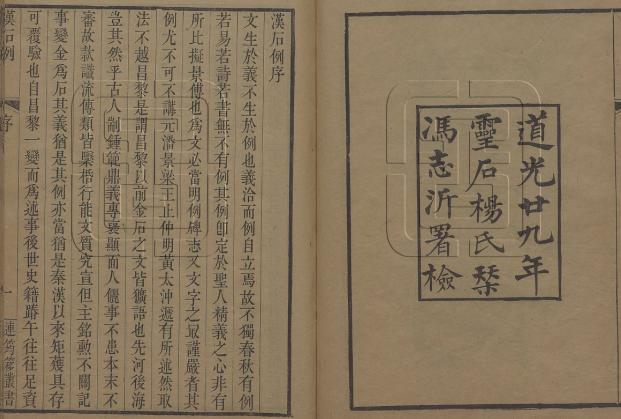 道光廿九年
靈石楊氏栞
馮志沂署檢
漢石例序
文生於義不生於例也義洽而例自立焉故不獨春秋有例
若易若詩若書無不有例其例卽定於聖人精義之心非有
所比擬景傅也爲文必當明例碑志又文字之最謹嚴者其
例尤不可不講元潘景梁王止仲明黃太沖遞有所述然取
法不越昌黎是謂昌黎以前金石之文皆獷語也先河後海
豈其然乎古人制鍾範鼎義專褒顯面人儷事不患本末不
審故款識流傳類皆槩舉行能文質宂宣但主銘勲不關記
事變金爲石其義猶是其例亦當猶是秦漢以來矩矱具存
可覆驗也自昌黎一變而爲述事後世史籍踳午往往足資
漢石例
序
一
連筠簃叢書